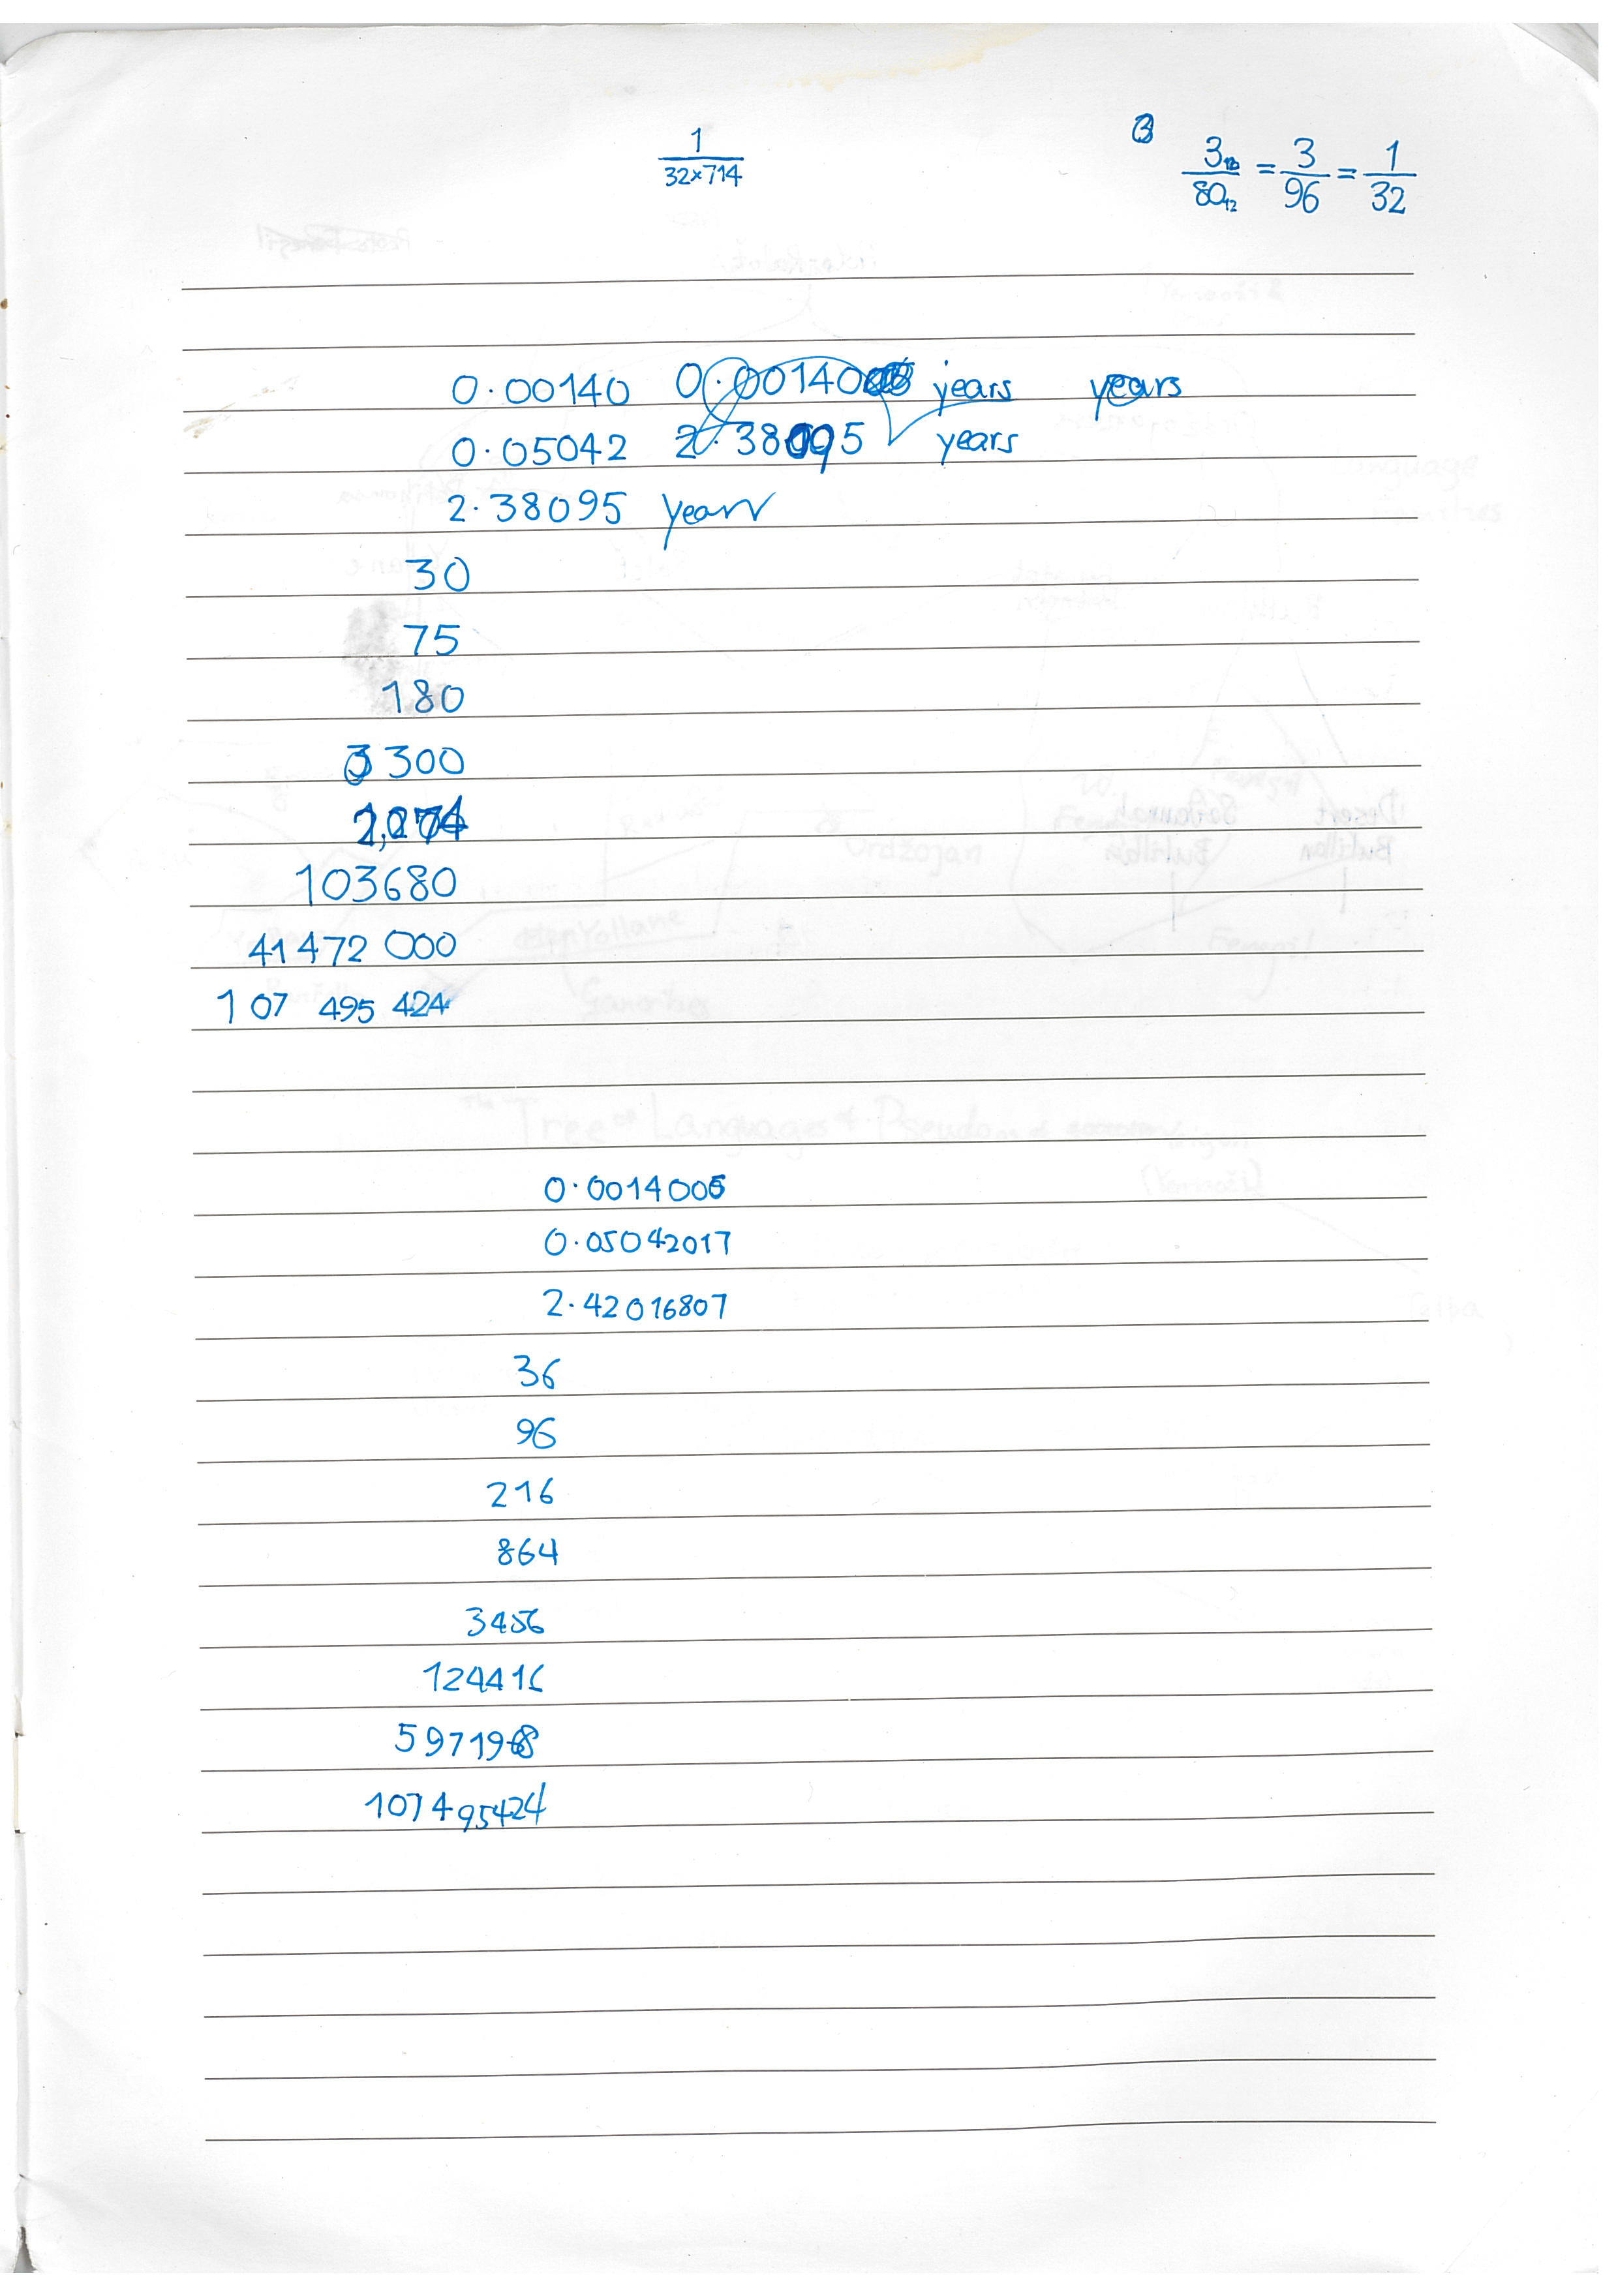 1
32×714
3₁₂/80₁₂ = 3/96 = 1/32
0.00140 0.00140 years years
0.05042 2.38095 years
2.38095 years
30
75
180
3 300
103680
41 472 000
107 495 424
0.0014006
0.05042017
2.42016807
36
96
216
864
3456
124416
5971968
107495424